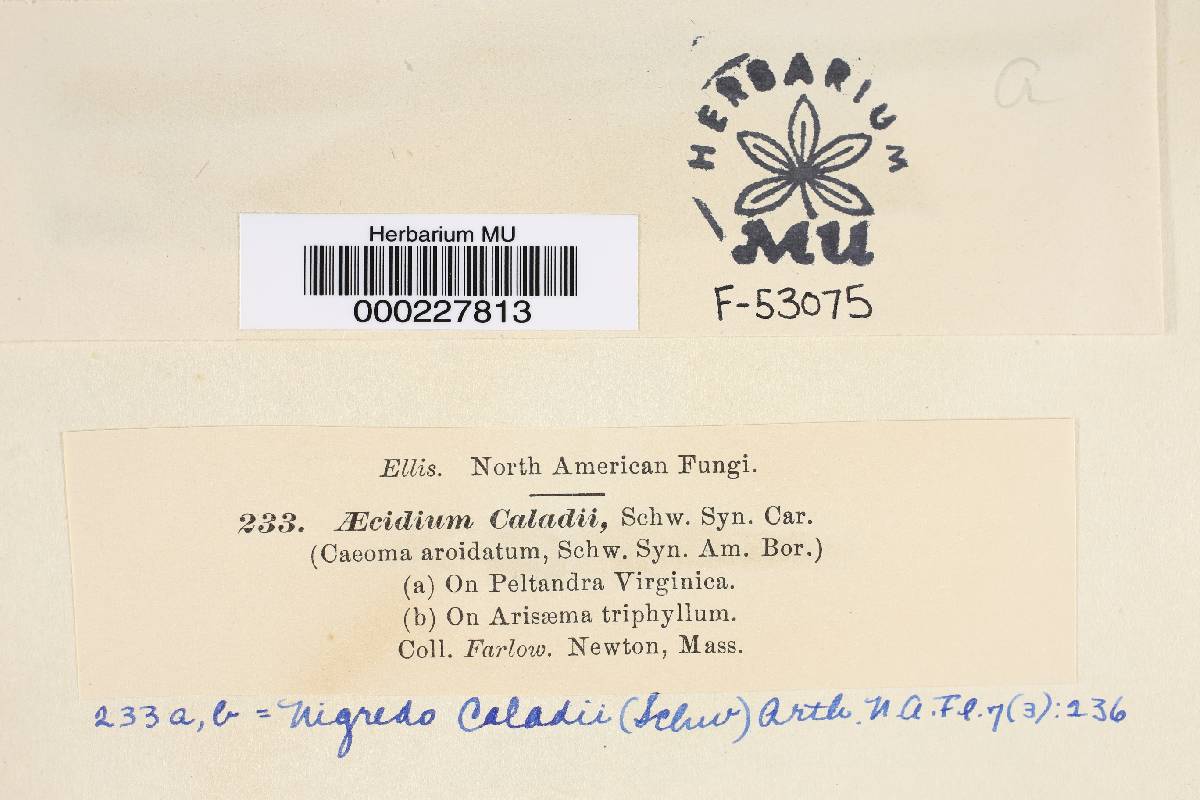 a
HERBARIUM
MU
F-53075
Herbarium MU
000227813
Ellis. North American Fungi.
233. Æcidium Caladii, Schw. Syn. Car.
(Caeoma aroidatum, Schw. Syn. Am. Bor.)
(a) On Peltandra Virginica.
(b) On Arisæma triphyllum.
Coll. Farlow. Newton, Mass.
233 a, b = Nigredo Caladii (Schw) Arth. N. A. Fl. 7(3): 236